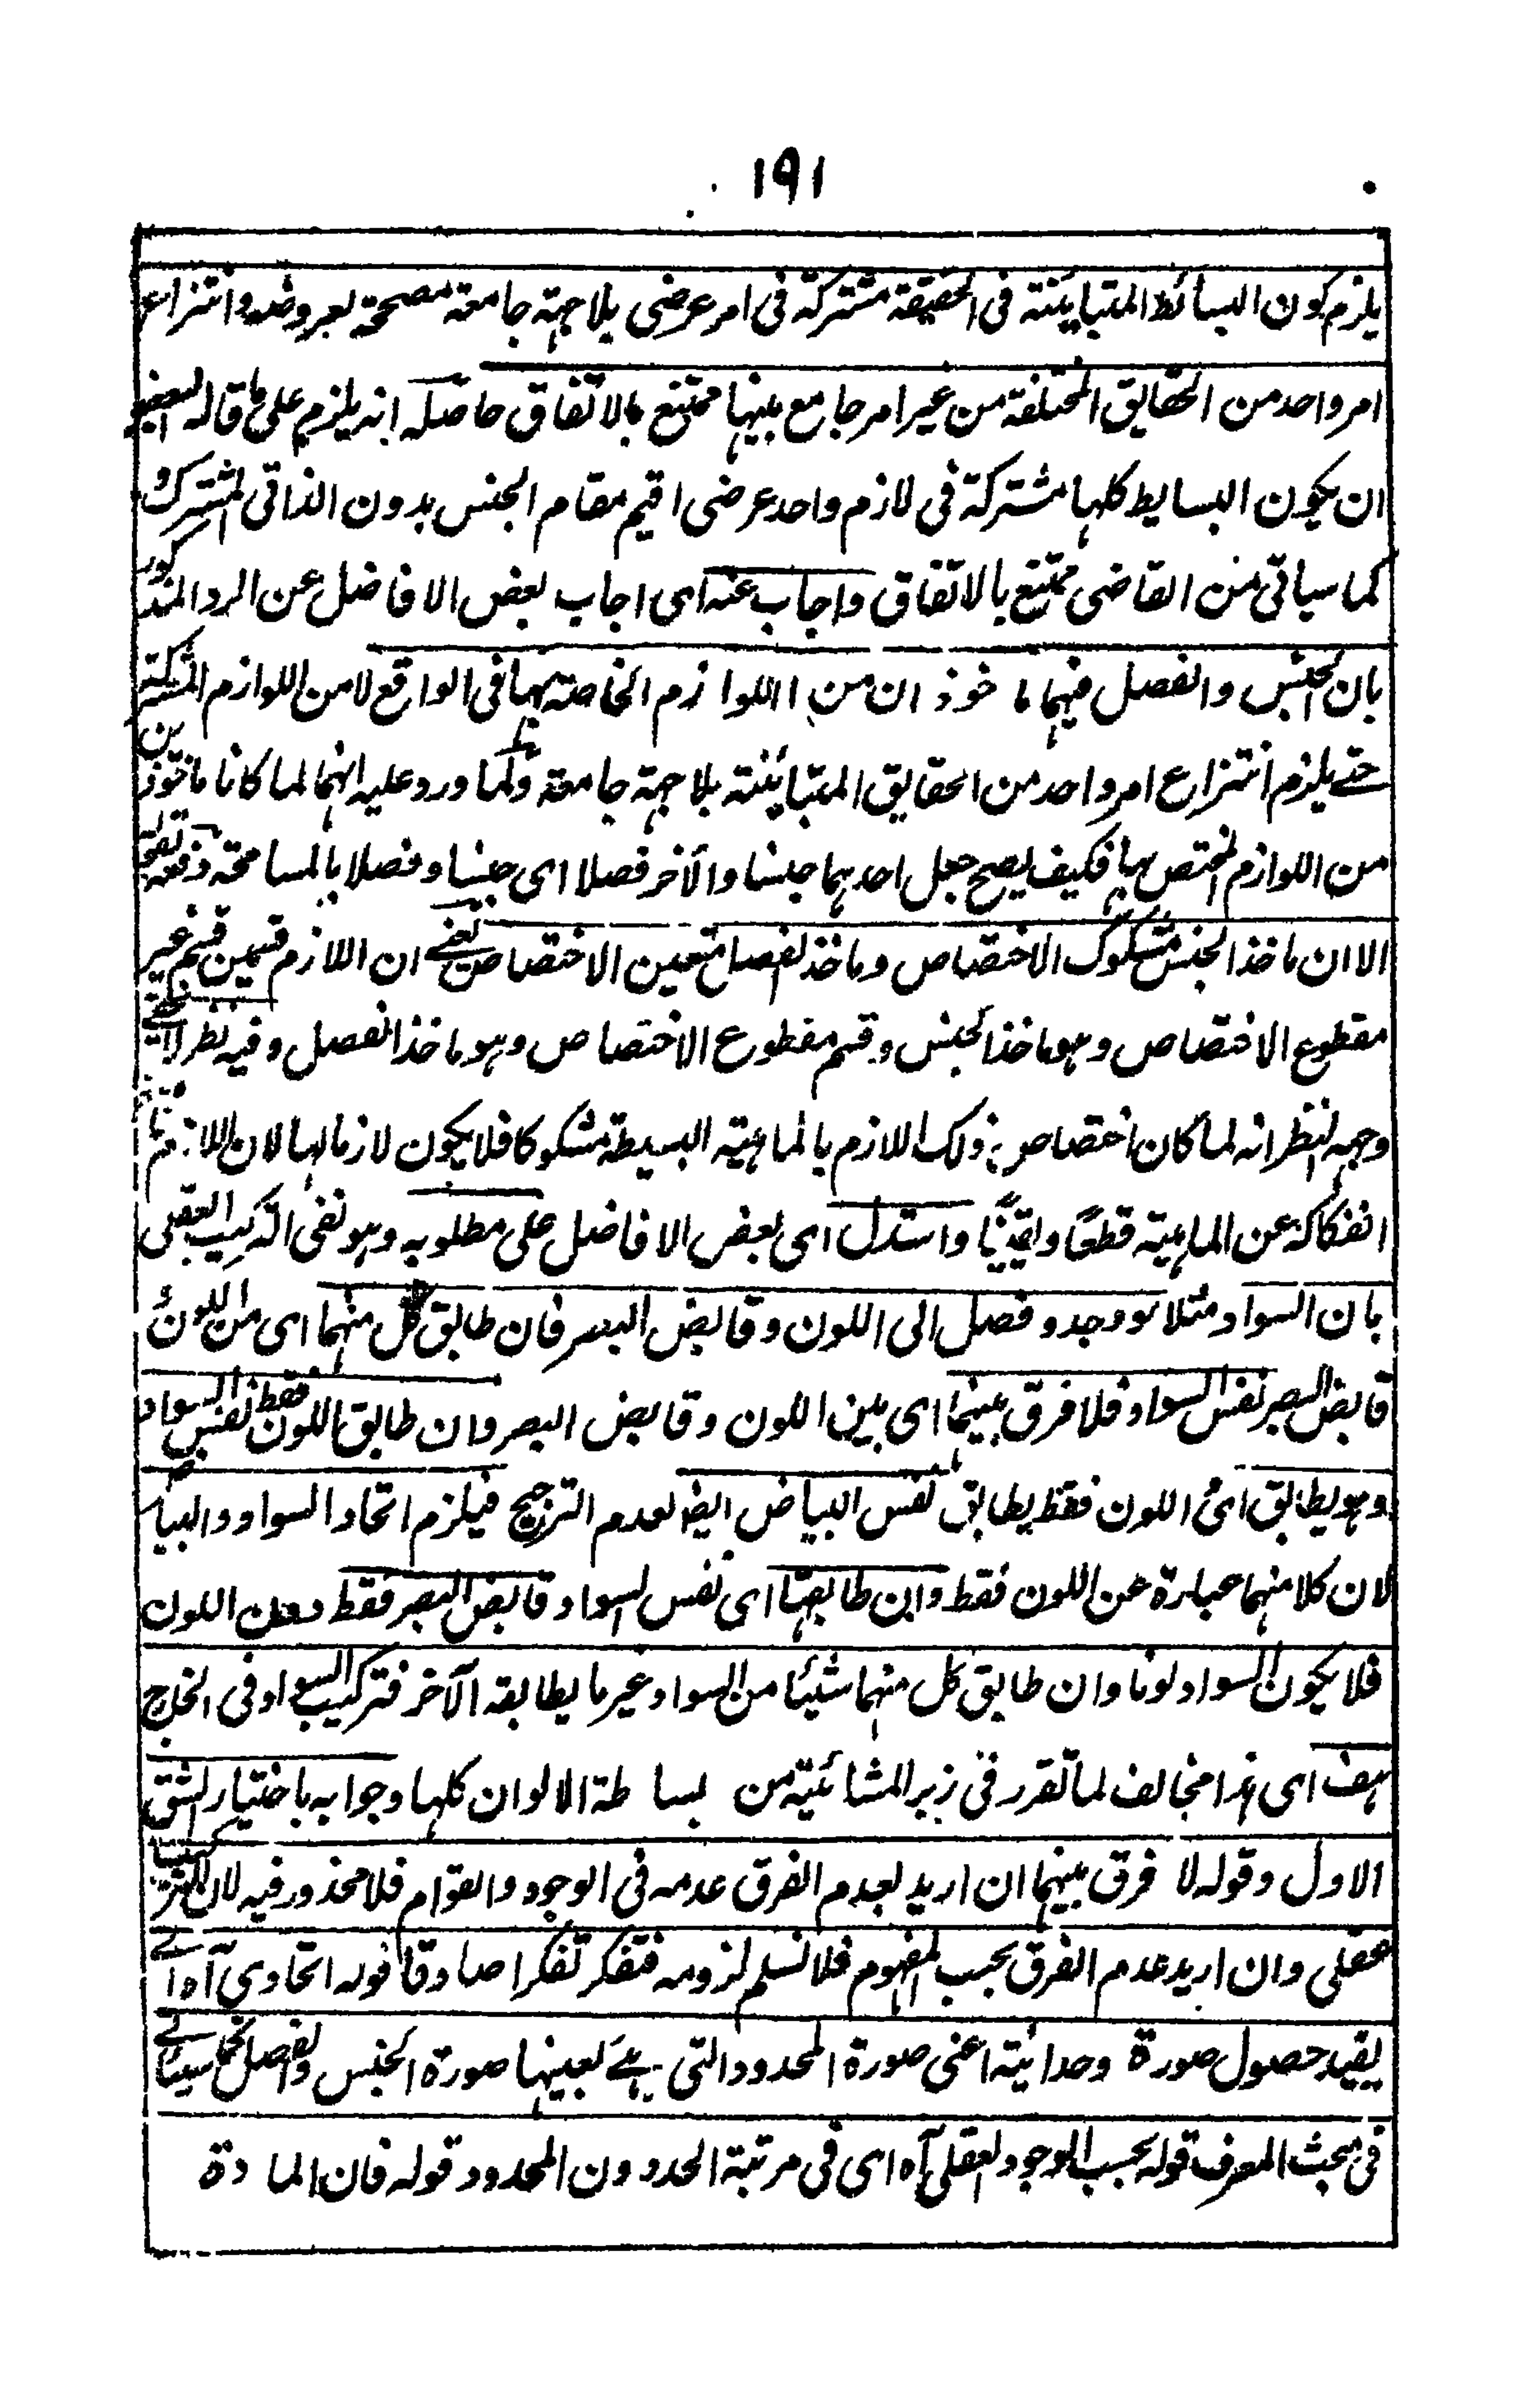 ١٩١
يلزم كون البسائط المتبائنة فى الحقيقة مشتركة فى امر عرضى بلا جهة جامعة مصححة لعروضه وانتزاع
امر واحد من الحقايق المختلفة من غير امر جامع بينها ممتنع بالاتفاق حاصله انه يلزم على ما قاله البعض
ان يكون البسايط كلها مشتركة فى لازم واحد عرضى اقيم مقام الجنس بدون الذاتى المشترك و
كما سياتى من القاضى ممتنع بالاتفاق واجاب عنه اى اجاب بعض الافاضل عن الرد المذكور
بان الجنس والفصل فيهما ماخوذ ان من اللوازم الخاصة بهما فى الواقع لا من اللوازم المشتركة
حتے يلزم انتزاع امر واحد من الحقايق المتبائنة بلا جهة جامعة ولما ورد عليه انهما لما كانا ماخوذين
من اللوازم المختص بها فكيف يصح جعل احدهما جنسا والآخر فصلا اى جنسا وفصلا بالمسامحة دفعه بقوله
الا ان ماخذ الجنس مشكوك الاختصاص وماخذ الفصل متعين الاختصاص يعنے ان اللازم قسمين قسم غير
مقطوع الاختصاص وهو ماخذ الجنس وقسم مقطوع الاختصاص وهو ماخذ الفصل وفيه نظر لا يخفے
وجه النظر انه لما كان اختصاص ذلك اللازم بالماهية البسيطة مشكوكا فلا يكون لازما لها لان اللازم ممتنع
انفكاكه عن الماهية قطعًا ويقينًا واستدل اى بعض الافاضل على مطلوبه وهو نفى التركيب العقلى
بان السواد مثلا لو وجد و فصل الى اللون وقابض البصر فان طابق كل منهما اى من اللون و
قابض البصر نفس السواد فلا فرق بينهما اى بين اللون وقابض البصر وان طابق اللون فقط نفس السواد
وهو يطابق اى اللون فقط يطابق نفس البياض ايضا لعدم الترجيح فيلزم اتحاد السواد والبياض
لان كلا منهما عبارة عن اللون فقط وان طابقها اى نفس السواد قابض البصر فقط دون اللون
فلا يكون السواد لونا وان طابق كل منهما شيئا من السواد غير ما يطابقه الآخر فتركيب السواد فى الخارج
هف اى هذا مخالف لما تقرر فى زبر المشائية من بساطة الالوان كلها وجوابه باختيار الشق
الاول وقوله لا فرق بينهما ان اريد بعدم الفرق عدمه فى الوجود والقوام فلا محذور فيه لان التركيب
عقلى وان اريد عدم الفرق بحسب المفهوم فلا نسلم لزومه فتفكر تفكرا صادقا قوله اتحادى آه اے
يفيد حصول صورة وحدانية اعنى صورة المحدود التى هے بعينها صورة الجنس والفصل كما سيأتے
فى مبحث المعرف قوله بحسب الوجود العقلى آه اى فى مرتبة الحد دون المحدود قوله فان المادة